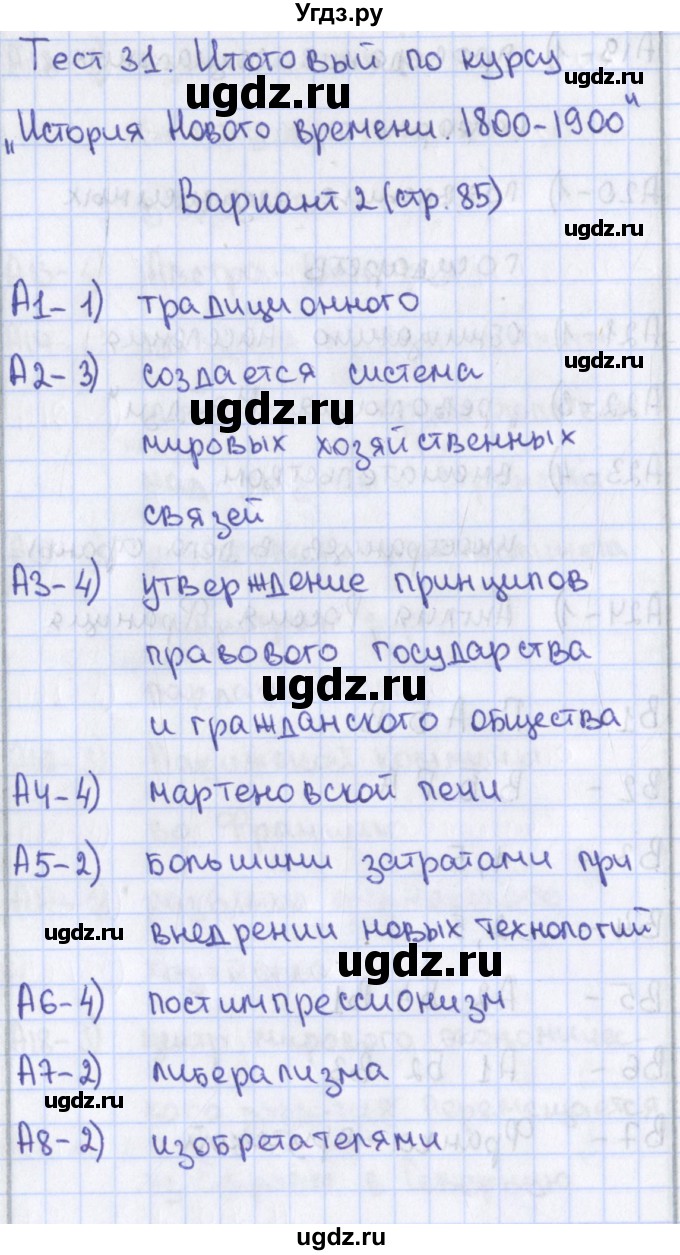 Угдз.ру
Тест 31. Итоговый по курсу
ugdz.ru
ugdz.ru
„История Нового времени. 1800-1900"
Вариант 2 (стр. 85)
ugdz.ru
А1- 1) традиционного
А2- 3) создается система
ugdz.ru
ugdz.ru
мировых хозяйственных
связей
ugdz.ru
А3- 4) утверждение принципов
правового государства
ugdz.ru
и гражданского общества
А4-4) мартеновской печи
А5-2) большими затратами при
ugdz.ru
внедрении новых технологий
ugdz.ru
А6-4) постимпрессионизм
А7-2) либерализма
ugdz.ru
А8-2) изобретателями
ugdz.ru
ugdz.ru